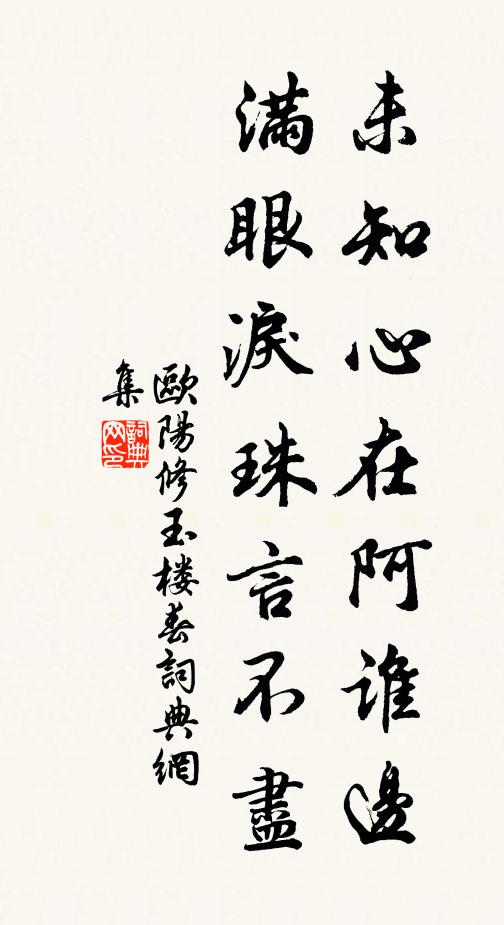 未知心在阿誰邊
滿眼淚珠言不盡
歐陽修玉楼春詞典網
集
詞典
网印